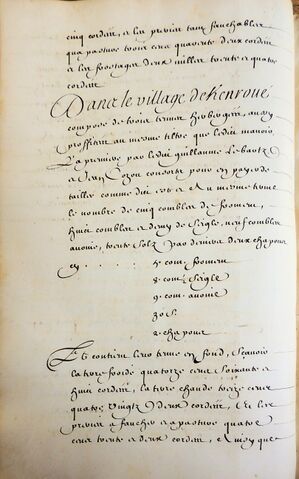 cinq cordes, et les prez tant fauchables
que pastures trois cens quarente deux cordes
et les frostages deux milles trente et quatre
cordes
Dans le village de Kenroué
compose de trois tenues hesbergées, aussy
proffitans au mesme tiltre que ledit manoir
La premiere par ledit guillaume Le bartz
et Jean consorts pour en payer de
tailles comme dit est et au mesme terme
le nombre de cinq combles de froment,
huict combles et demy de seigle, neuf combles
avoine, trente solz par deniers deux chapons
cy . . . . . . 5. com. froment
8. com. ½ seigle
9. com. avoine
30 s.
2. chapons
Et contient leurs terres en fond, scavoir
la terre froide quatorze cens soixante et
huict cordes, la terre chaude treize cens
quatre vingtz deux cordes, et les
prez à faucher et pastures quatre
cens trente et deux cordes, et moy que